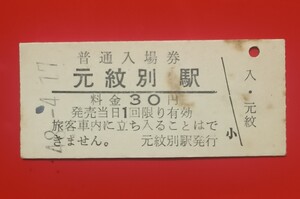 普通入場券
元紋別駅
料金30円
発売当日1回限り有効
旅客車内に立ち入ることはで
きません。 元紋別駅発行
小
入・元紋